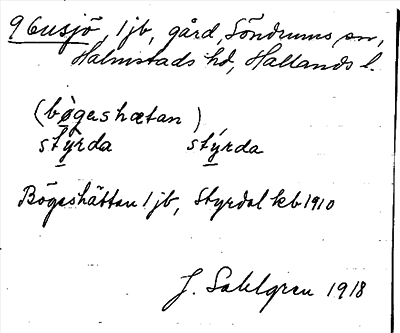 Gusjö, 1 jb, gård, Söndrums sn,
Halmstads hd, Hallands l.
(bøgashætan)
stýrda stýrda
Bögashättan 1 jb, Styrdal kb 1910
J. Sahlgren 1918